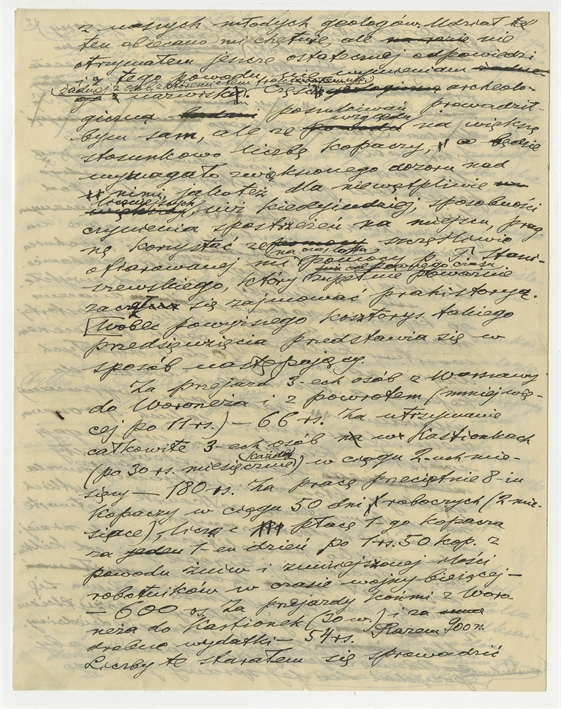 z naszych młodych geologów. Udział
ten obiecano mi chętnie, ale na razie nie
otrzymałem jeszcze ostatecznej odpowiedzi
i z tego powodu nie wymieniam
żadnej z osób
nazwiska. Część archeolo-
giczną prowadzić
bym sam, ale ze względu na większą
stosunkowo liczbę kopaczy, co będzie
wymagało zwiększonego dozoru nad
nimi jakoteż dla niewątpliwie
liczniejszych, niż kiedyindziej, sposobności
czynienia spostrzeżeń na miejscu, prag-
nę korzystać ze szczęśliwie
na ten czas
ofiarowanej mi pomocy p. T. Stani-
szewskiego, który zupełnie poważnie
zaczął się zajmować prahistoryą.
Wobec powyższego kosztorys takiego
przedsięwzięcia przedstawia się w
sposób następujący.
Za przejazd 3-ech osób z Warszawy
do Woroneża i z powrotem (mniej wię-
cej po 11 rs.) — 66 rs. Za utrzymanie
całkowite 3-ech osób w Kostionkach
(po 30 rs. miesięcznie każdej) w ciągu 2-uch mie-
sięcy — 180 rs. Za pracę przeciętnie 8-iu
kopaczy w ciągu 50 dni roboczych (2 mie-
siące), licząc płacę 1-go kopacza
za jeden 1-en dzień po 1 rs. 50 kop. z
powodu żniw i zmniejszonej ilości
robotników w czasie wojny bieżącej —
— 600 rs. Za przejazdy końmi z Woro-
neża do Kostionek (30 w.) i za
drobne wydatki — 54 rs. Razem 900 r.
Liczby te starałem się sprowadzić